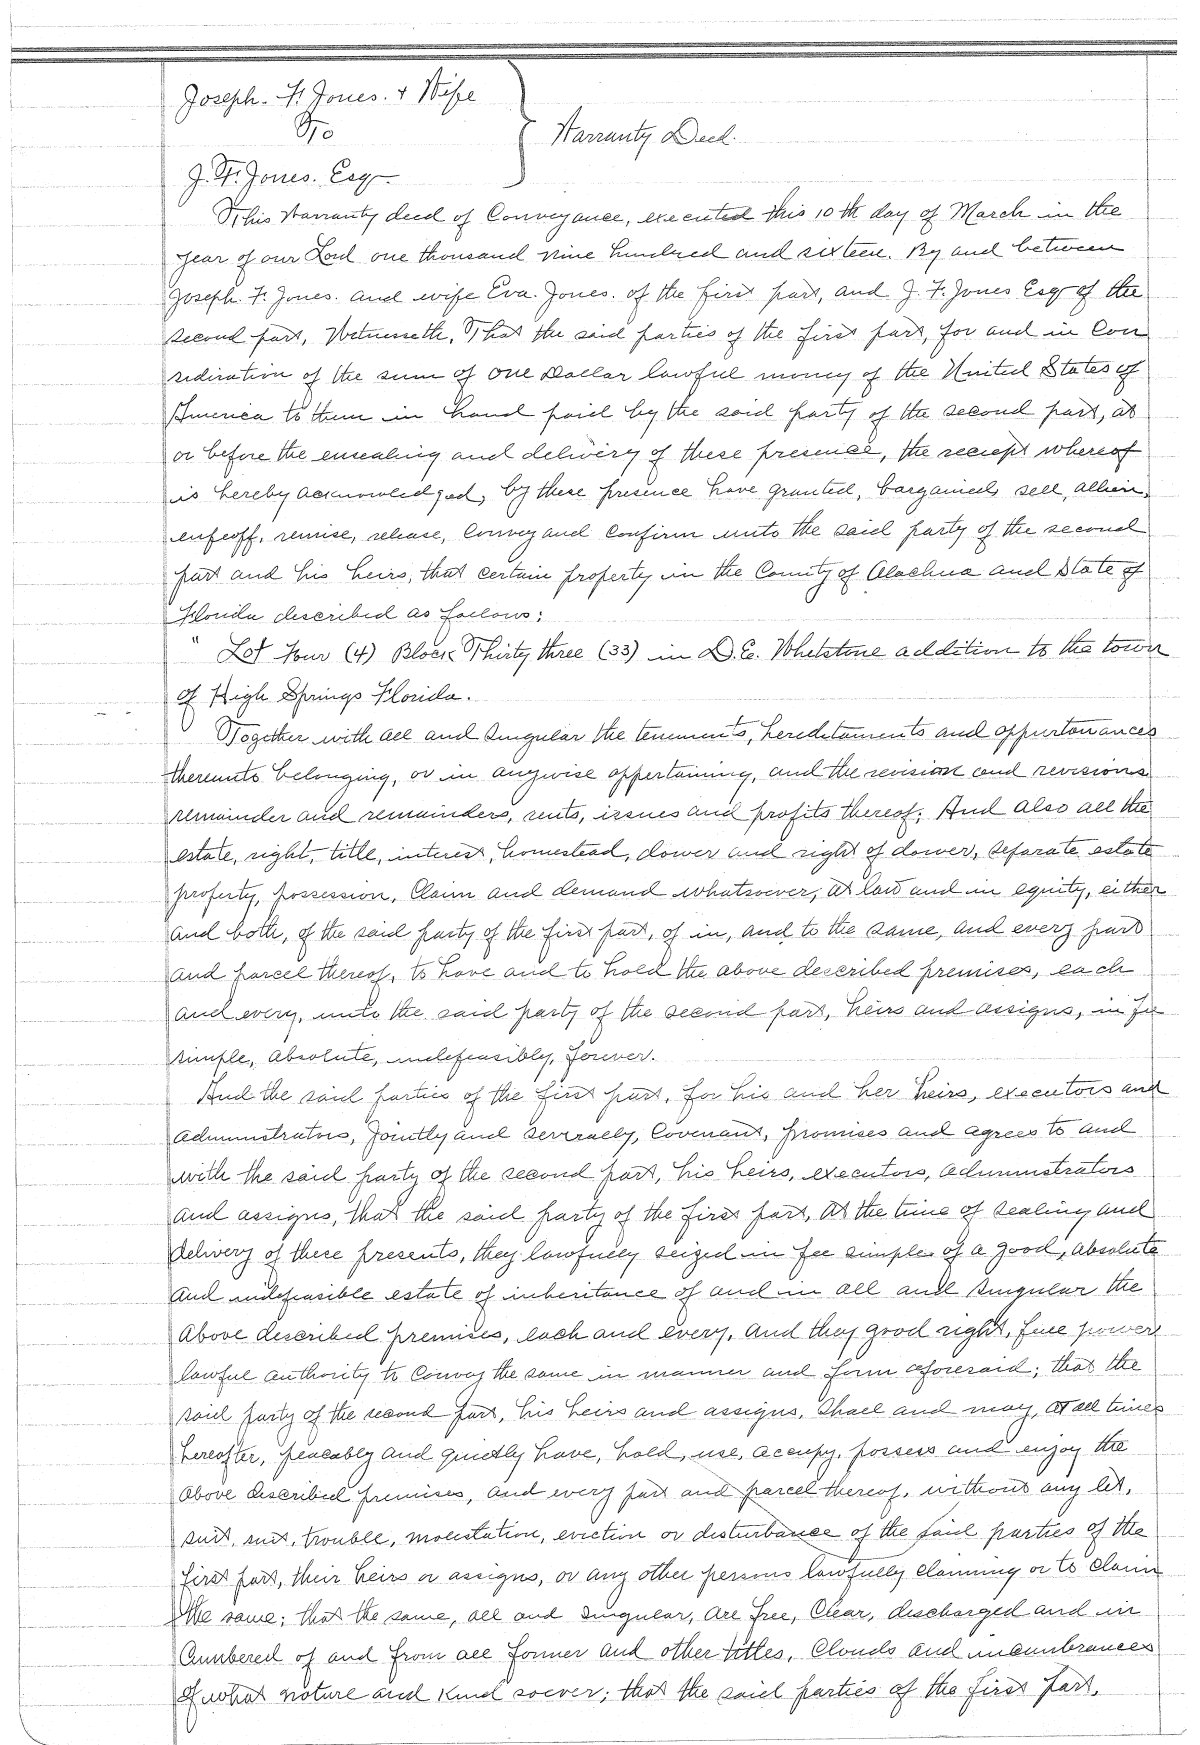 Joseph. F. Jones. & Wife
To
Warranty Deed.
J. F. Jones. Esq.
This Warranty deed of Conveyance, executed this 10th day of March in the
year of our Lord one thousand nine hundred and sixteen. By and between
Joseph. F. Jones. and wife Eva. Jones. of the first part, and J. F. Jones Esq of the
second part, Witnesseth, That the said parties of the first part, for and in Con
sidiration of the sum of one Dollar lawful money of the United States of
America to them in hand paid by the said party of the second part, at
or before the ensealing and delivery of these presence, the reciept whereof
is hereby acknowledged, by these presence have granted, bargained, sell, alien,
enfeoff, remise, release, Convey and Confirm unto the said party of the second
part and his heirs, that certain property in the County of Alachua and State of
Florida described as follows:
" Lot Four (4) Block Thirty three (33) in D.E. Whetstone addition to the town
of High Springs Florida.
Together with all and singular the tenements, hereditaments and appurtanances
thereunto belonging, or in anywise appertaining, and the revision and revisions
remainder and remainders, rents, issues and profits thereof; And also all the
estate, right, title, interest, homestead, dower and right of dower, separate estate
property, possession, Claim and demand whatsoever, at law and in equity, either
and both, of the said party of the first part, of in, and to the same, and every part
and parcel thereof, to have and to hold the above described premises, each
and every, unto the said party of the second part, heirs and assigns, in fee
simple, absolute, indefeasibly, forever.
And the said parties of the first part, for his and her heirs, executors and
administrators, Jointly and severally, Covenant, promises and agrees to and
with the said party of the second part, his heirs, executors, administrators
and assigns, that the said party of the first part, at the time of sealing and
delivery of these presents, they lawfully seized in fee simple of a good, absolute
and indefeasible estate of inheritance of and in all and singular the
above described premises, each and every, and they good right, full power
lawful authority to Convey the same in manner and form aforesaid; that the
said party of the second part, his heirs and assigns, shall and may, at all times
hereafter, peacably and quietly have, hold, use, accupy, possess and enjoy the
above described premises, and every part and parcel thereof, without any let,
suit, trouble, molestation, eviction or disturbance of the said parties of the
first part, their heirs or assigns, or any other persons lawfully claiming or to claim
the same; that the same, all and singular, are free, Clear, discharged and in
Cumbered of and from all former and other titles, Clouds and incumbrances
of what nature and kind soever; that the said parties of the first part,